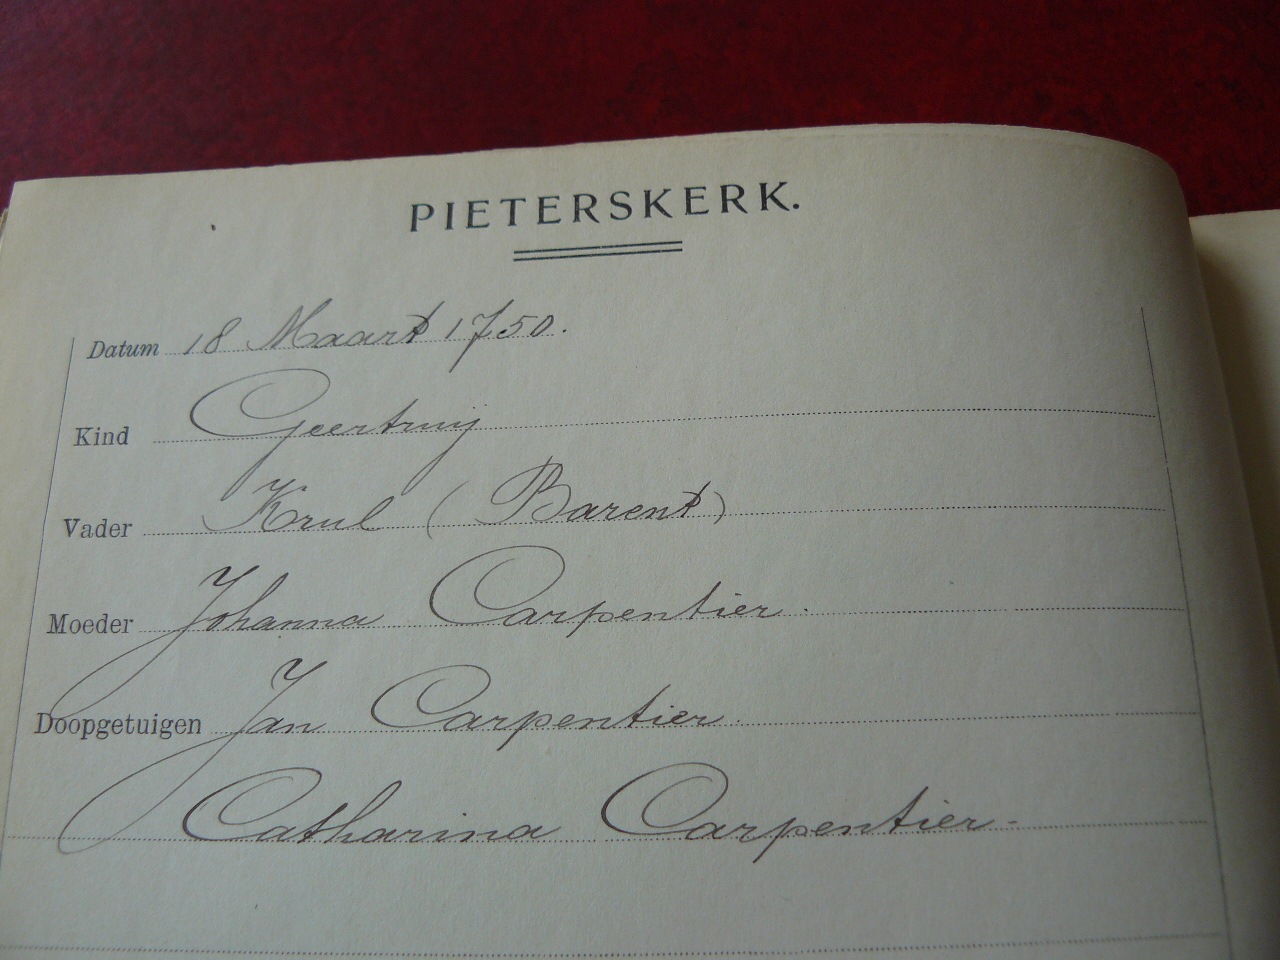 PIETERSKERK.
Datum 18 Maart 1750.
Kind Geertruij
Vader Krul (Barent)
Moeder Johanna Carpentier.
Doopgetuigen Jan Carpentier.
Catharina Carpentier-